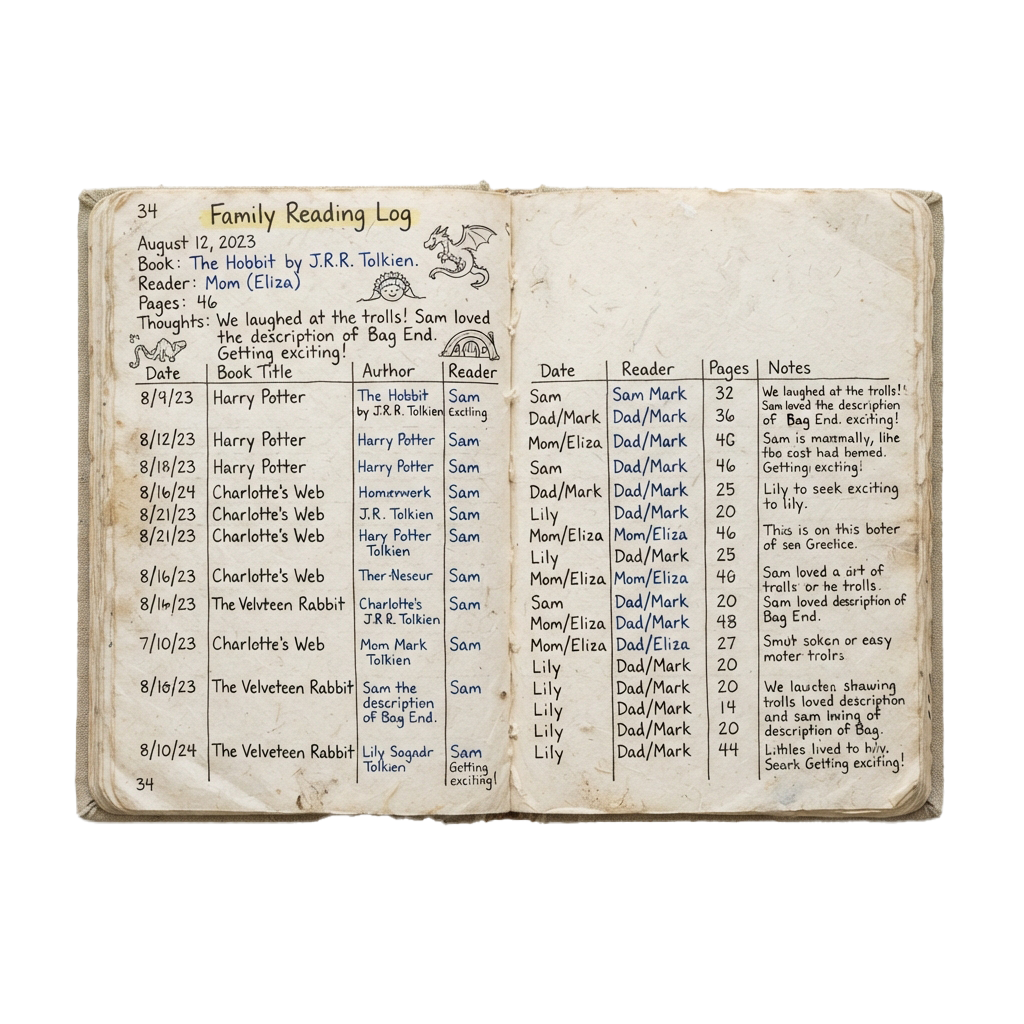 34
Family Reading Log
August 12, 2023
Book: The Hobbit by J.R.R. Tolkien.
Reader: Mom (Eliza)
Pages: 46
Thoughts: We laughed at the trolls! Sam loved
the description of Bag End.
Getting exciting!
Date Book Title Author Reader
8/9/23 Harry Potter The Hobbit Sam
by J.R.R. Tolkien
8/12/23 Harry Potter Harry Potter Sam
8/18/23 Harry Potter Harry Potter Sam
8/16/24 Charlotte's Web Sam
8/21/23 Charlotte's Web J.R. Tolkien Sam
8/21/23 Charlotte's Web Hary Potter Sam
Tolkien
8/16/23 Charlotte's Web Sam
The Velvteen Rabbit Charlotte's Sam
J.R.R. Tolkien
7/10/23 Charlotte's Web Mom Mark Sam
Tolkien
The Velveteen Rabbit Sam the Sam
description
of Bag End.
8/10/24 The Velveteen Rabbit Lily Sam
Tolkien Getting
exciting!
34
Date Reader Pages Notes
Sam Sam Mark 32 We laughed at the trolls!
Sam loved the description
Dad/Mark Dad/Mark 36 of Bag End. exciting!
Mom/Eliza Dad/Mark Sam is like
cost had
Sam Dad/Mark 46 Getting
Dad/Mark Dad/Mark 25 Lily to seek exciting
to lily.
Lily Dad/Mark 20
Mom/Eliza Mom/Eliza 46 is on this
of
Lily Dad/Mark 25
Mom/Eliza Mom/Eliza Sam loved a of
trolls or he trolls.
Sam Dad/Mark 20 Sam loved description of
Mom/Eliza Dad/Mark 48 Bag End.
Mom/Eliza Dad/Eliza 27 or easy
Lily Dad/Mark 20
Lily Dad/Mark 20 We
Lily Dad/Mark 14 trolls loved description
and sam of
Lily Dad/Mark 20 description of Bag.
Lily Dad/Mark 44 lived to
Getting